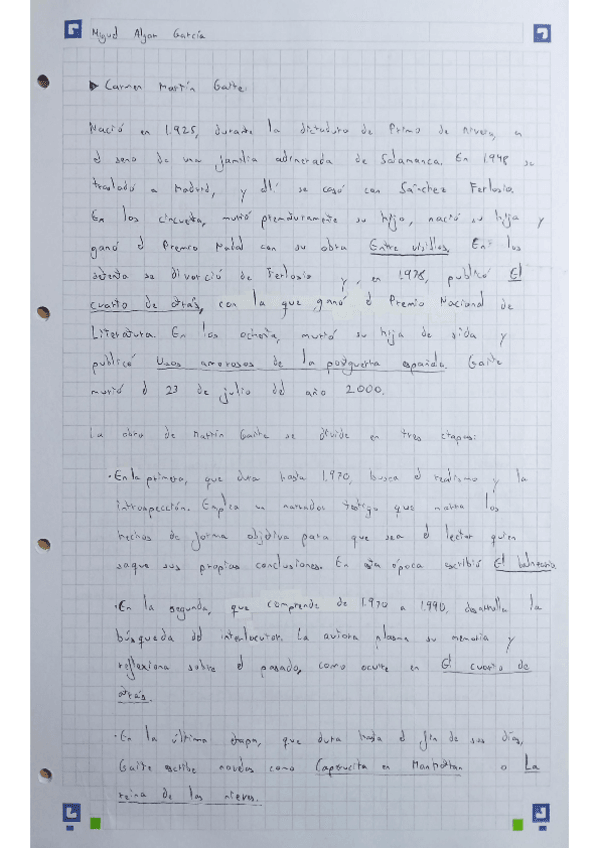 Miguel Algar García
▶ Carmen Martín Gaite.
Nació en 1.925, durante la dictadura de Primo de Rivera, en
el seno de una familia adinerada de Salamanca. En 1.948 se
trasladó a Madrid, y allí se casó con Sánchez Ferlosio.
En los cincuenta, murió prematuramente su hijo, nació su hija y
ganó el Premio Nadal con su obra Entre visillos. En los
setenta se divorció de Ferlosio y, en 1.978, publicó El
cuarto de atrás, con la que ganó el Premio Nacional de
Literatura. En los ochenta, murió su hija de sida y
publicó Usos amorosos de la postguerra española. Gaite
murió el 23 de julio del año 2.000.
La obra de Martín Gaite se divide en tres etapas:
·En la primera, que dura hasta 1.970, busca el realismo y la
introspección. Emplea un narrador testigo que narra los
hechos de forma objetiva para que sea el lector quien
saque sus propias conclusiones. En esta época escribió El balneario.
·En la segunda, que comprende de 1.970 a 1.990, desarrolla la
búsqueda del interlocutor. La autora plasma su memoria y
reflexiona sobre el pasado, como ocurre en El cuarto de
atrás.
·En la última etapa, que dura hasta el fin de sus días,
Gaite escribe novelas como Caperucita en Manhattan o La
reina de las nieves.